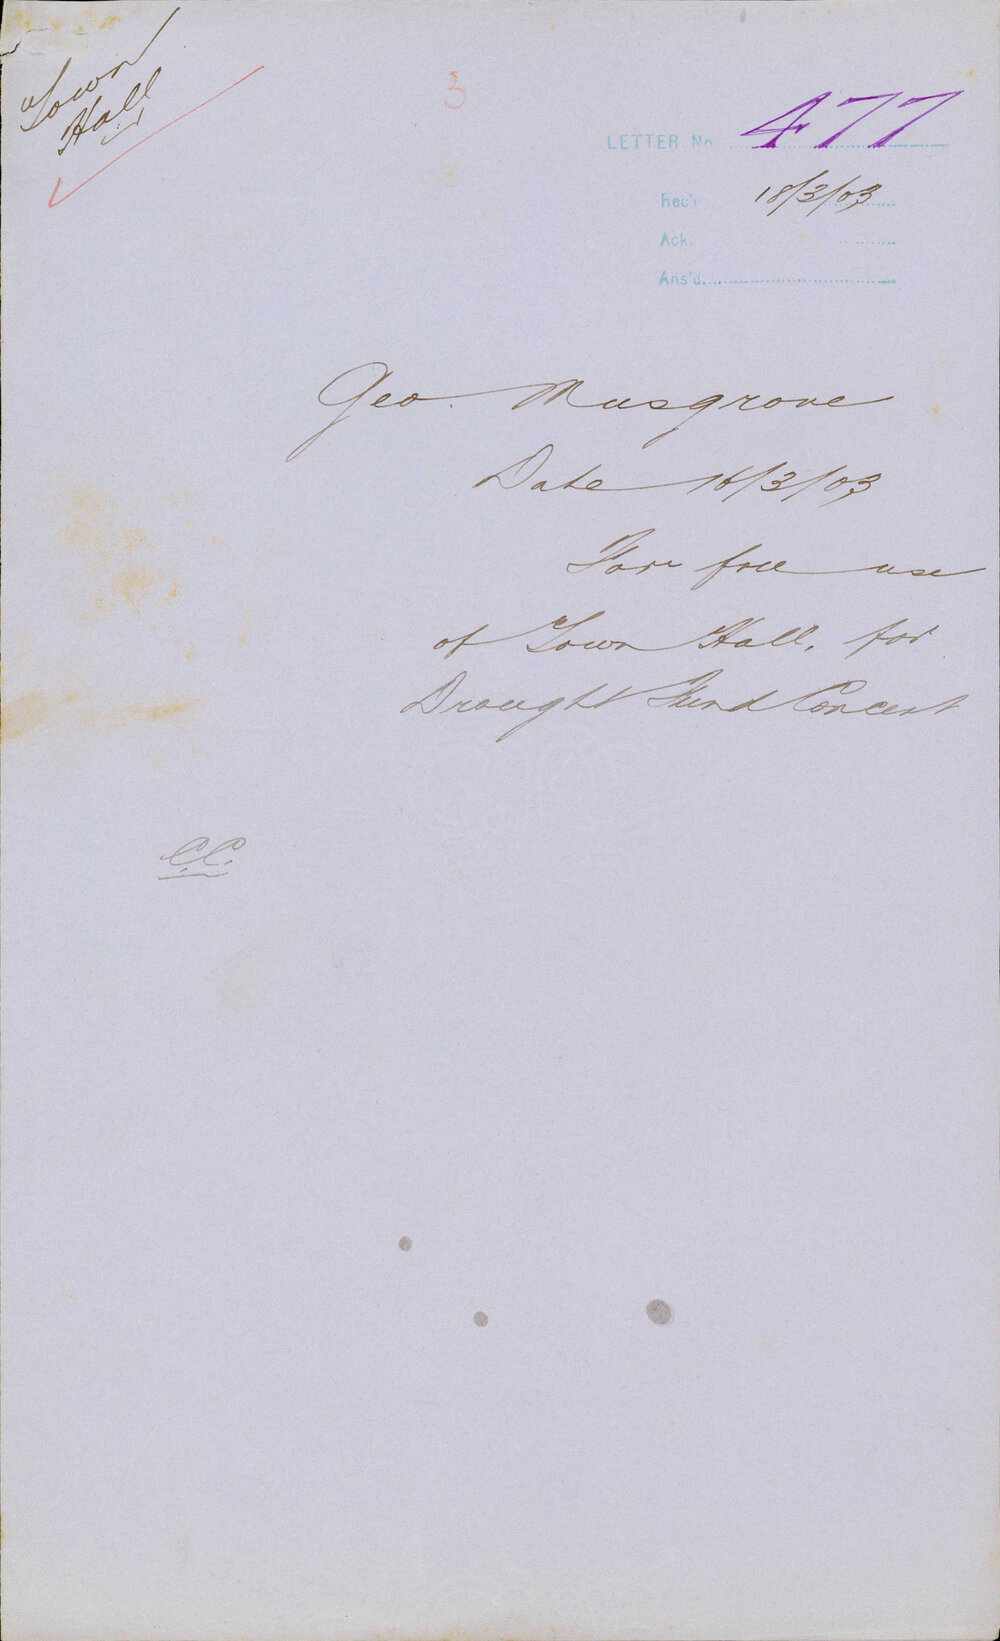 Town
Hall
3
LETTER No. 477
Rec'd 18/3/03
Ack.
Ans'd.
Geo. Musgrove
Date 16/3/03
For free use
of Town Hall, for
Drought Fund Concert
C.C.